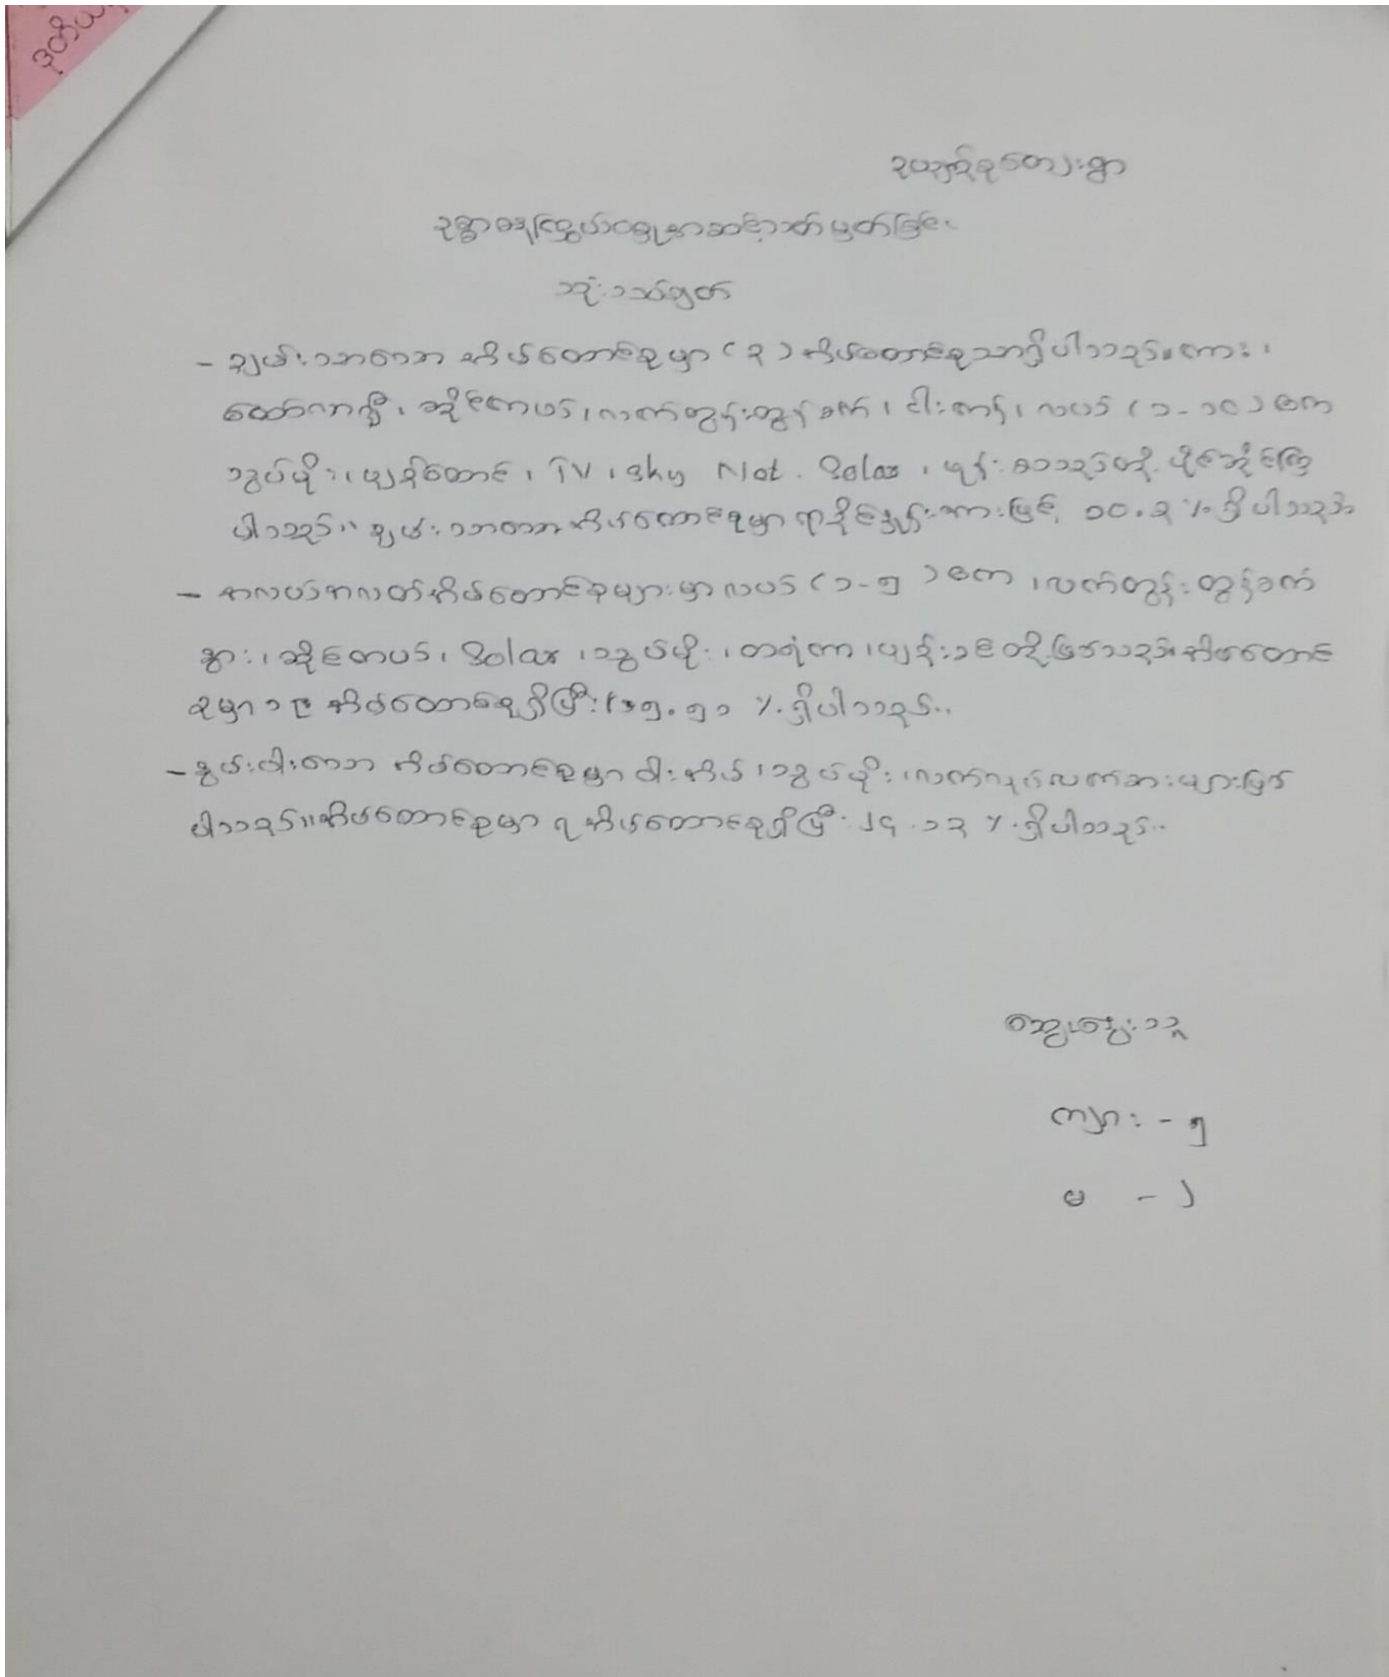 ဒုတိယ
ဥယျာဉ်စုကျေးရွာ
၃။ရွာမှကြွယ်ဝမှုအဆင့်သတ်မှတ်ခြင်း
သုံးသပ်ချက်
- ချမ်းသာသော အိမ်ထောင်စုမှာ (၃) အိမ်ထောင်စုသာရှိပါသည်။ကား၊
ထော်လာဂျီ၊ ဆိုင်ကယ်၊လက်တွန်းထွန်စက်၊ ငါးကန်၊ လယ် (၁-၁၀) ဧက
သွပ်မိုး၊ပျဉ်ထောင်၊ TV၊ Sky Net. Solar ၊ ဖုန်းစသည်တို့ ပိုင်ဆိုင်ကြ
ပါသည်။ ချမ်းသာသောအိမ်ထောင်စုမှာရာခိုင်နှုန်းအားဖြင့် ၁၀.၃ % ရှိပါသည်။
- အလယ်အလတ်အိမ်ထောင်စုများမှာလယ် (၁-၅) ဧက ၊လက်တွန်းထွန်စက်
နွား၊ ဆိုင်ကယ်၊ Solar ၊သွပ်မိုး၊ ထရံကာ၊ပျဉ်းခင်းတို့ဖြစ်သည်။အိမ်ထောင်
စုမှာ ၁၉ အိမ်ထောင်စုရှိပြီး ၆၅.၅၁ % ရှိပါသည်။
- နွမ်းပါးသော အိမ်ထောင်စုမှာ ဝါးအိမ် ၊သွပ်မိုး ၊လက်လုပ်လက်စားများဖြစ်
ပါသည်။အိမ်ထောင်စုမှာ ၇ အိမ်ထောင်စုရှိပြီး ၂၄.၁၃ % ရှိပါသည်။
ဆွေးနွေးသူ
ကျား - ၅
မ - ၂